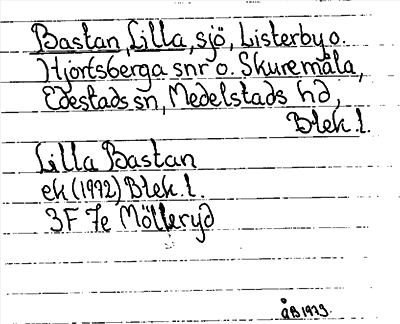 Bastan, Lilla, sjö, Listerby o.
Hjortsberga snr o. Skuremåla,
Edestads sn, Medelstads hd,
Blek. l.
Lilla Bastan
ek (1972) Blek. l.
3F 7e Mölleryd
ÅB 1979.